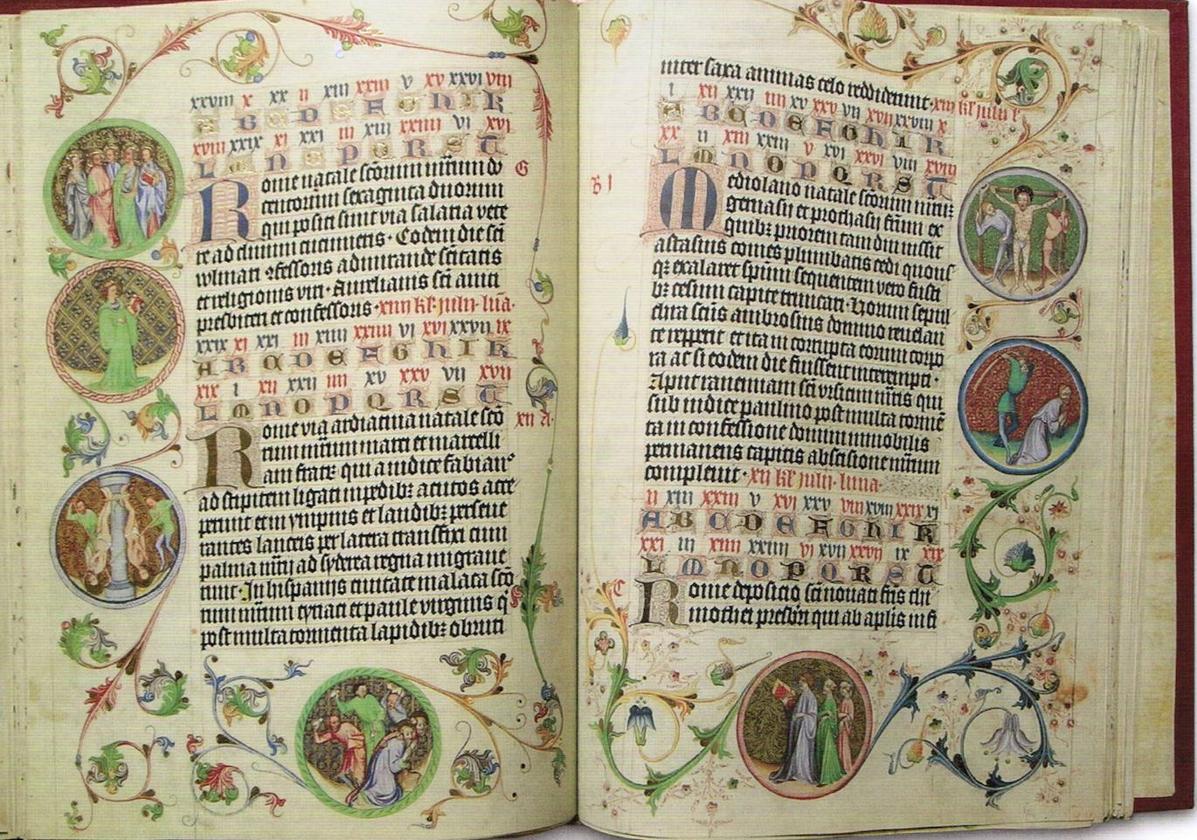 xxviii x xx ii xiii xxiii v xv xxvi viii
A B C D E F G H I K
xviii xxix xi xxi iii xiiii xxiiii vi xvi
L M N O P Q R S T
Rome natale scōrum mr̄um du
centorum sexaginta duorum
qui positi sunt via salaria vete
re ad clivum cucumeris · Eodem die scī
et religionis viri · Aurelianis scī aviti
presbiteri et confessoris · xiiii kł iulii luna ·
xxix xi xxi iii xiiii xxiiii vi xvi xxvii ix
A B C D E F G H I K
xix i xii xxii iiii xv xxv vii xvii
L M N O P Q R S T
xii A ·
Rome via ardiatina natale scō
rum mr̄um marci et marcelli
ani fratrum qui a iudice fabiano
ad stipitem ligati in pedibȝ acutos acce
perunt et in ympnis et laudibȝ perseve
rantes lanceis per latera transfixi cum
palma mr̄ii ad syderea regna migrave
runt · In hispaniis civitate malaca scō
rum mr̄um ciriaci et paule virginis q̄
post multa tormenta lapidibȝ obruti
G
inter saxa animas celo reddiderunt · xiii kł iulii ł
i xii xxii iiii xv xxv vii xvii xxviii x
A B C D E F G H I K
xx ii xiii xxiii v xvi xxvi viii xviii
L M N O P Q R S T
B I
Mediolano natale scōrum mr̄um
gervasii et prothasii fr̄um ex
quibȝ priorem tam diu iussit
astasius comes plumbatis cedi quousqȝ
exalaret spm̄ sequentem vero fusti
bȝ cesum capite truncari · Horum sepul
chra scūs ambrosius domino revelan
te repperit et ita incorrupta eorum corpo
ra ac si eodem die fuissent interempti ·
Aput ravennam scī mr̄is qui
sub iudice paulino post multa torme
ta in confessione domini immobilis
permanens capitis abscisione mr̄ium
complevit · xii kł iulii luna ·
ii xiii xxiii v xvi xxv viii xviii xxix xi
A B C D E F G H I K
xxi iii xiiii xxiiii vi xvii xxvii ix xix
L M N O P Q R S T
C
Rome deposicio scī novati fr̄is
timothei presbr̄i qui ab ap̄lis